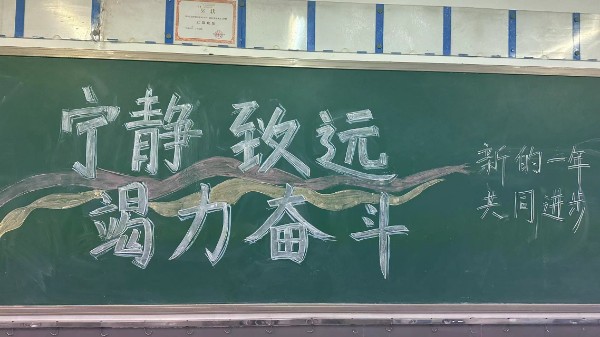 宁静致远
竭力奋斗
新的一年
共同进步